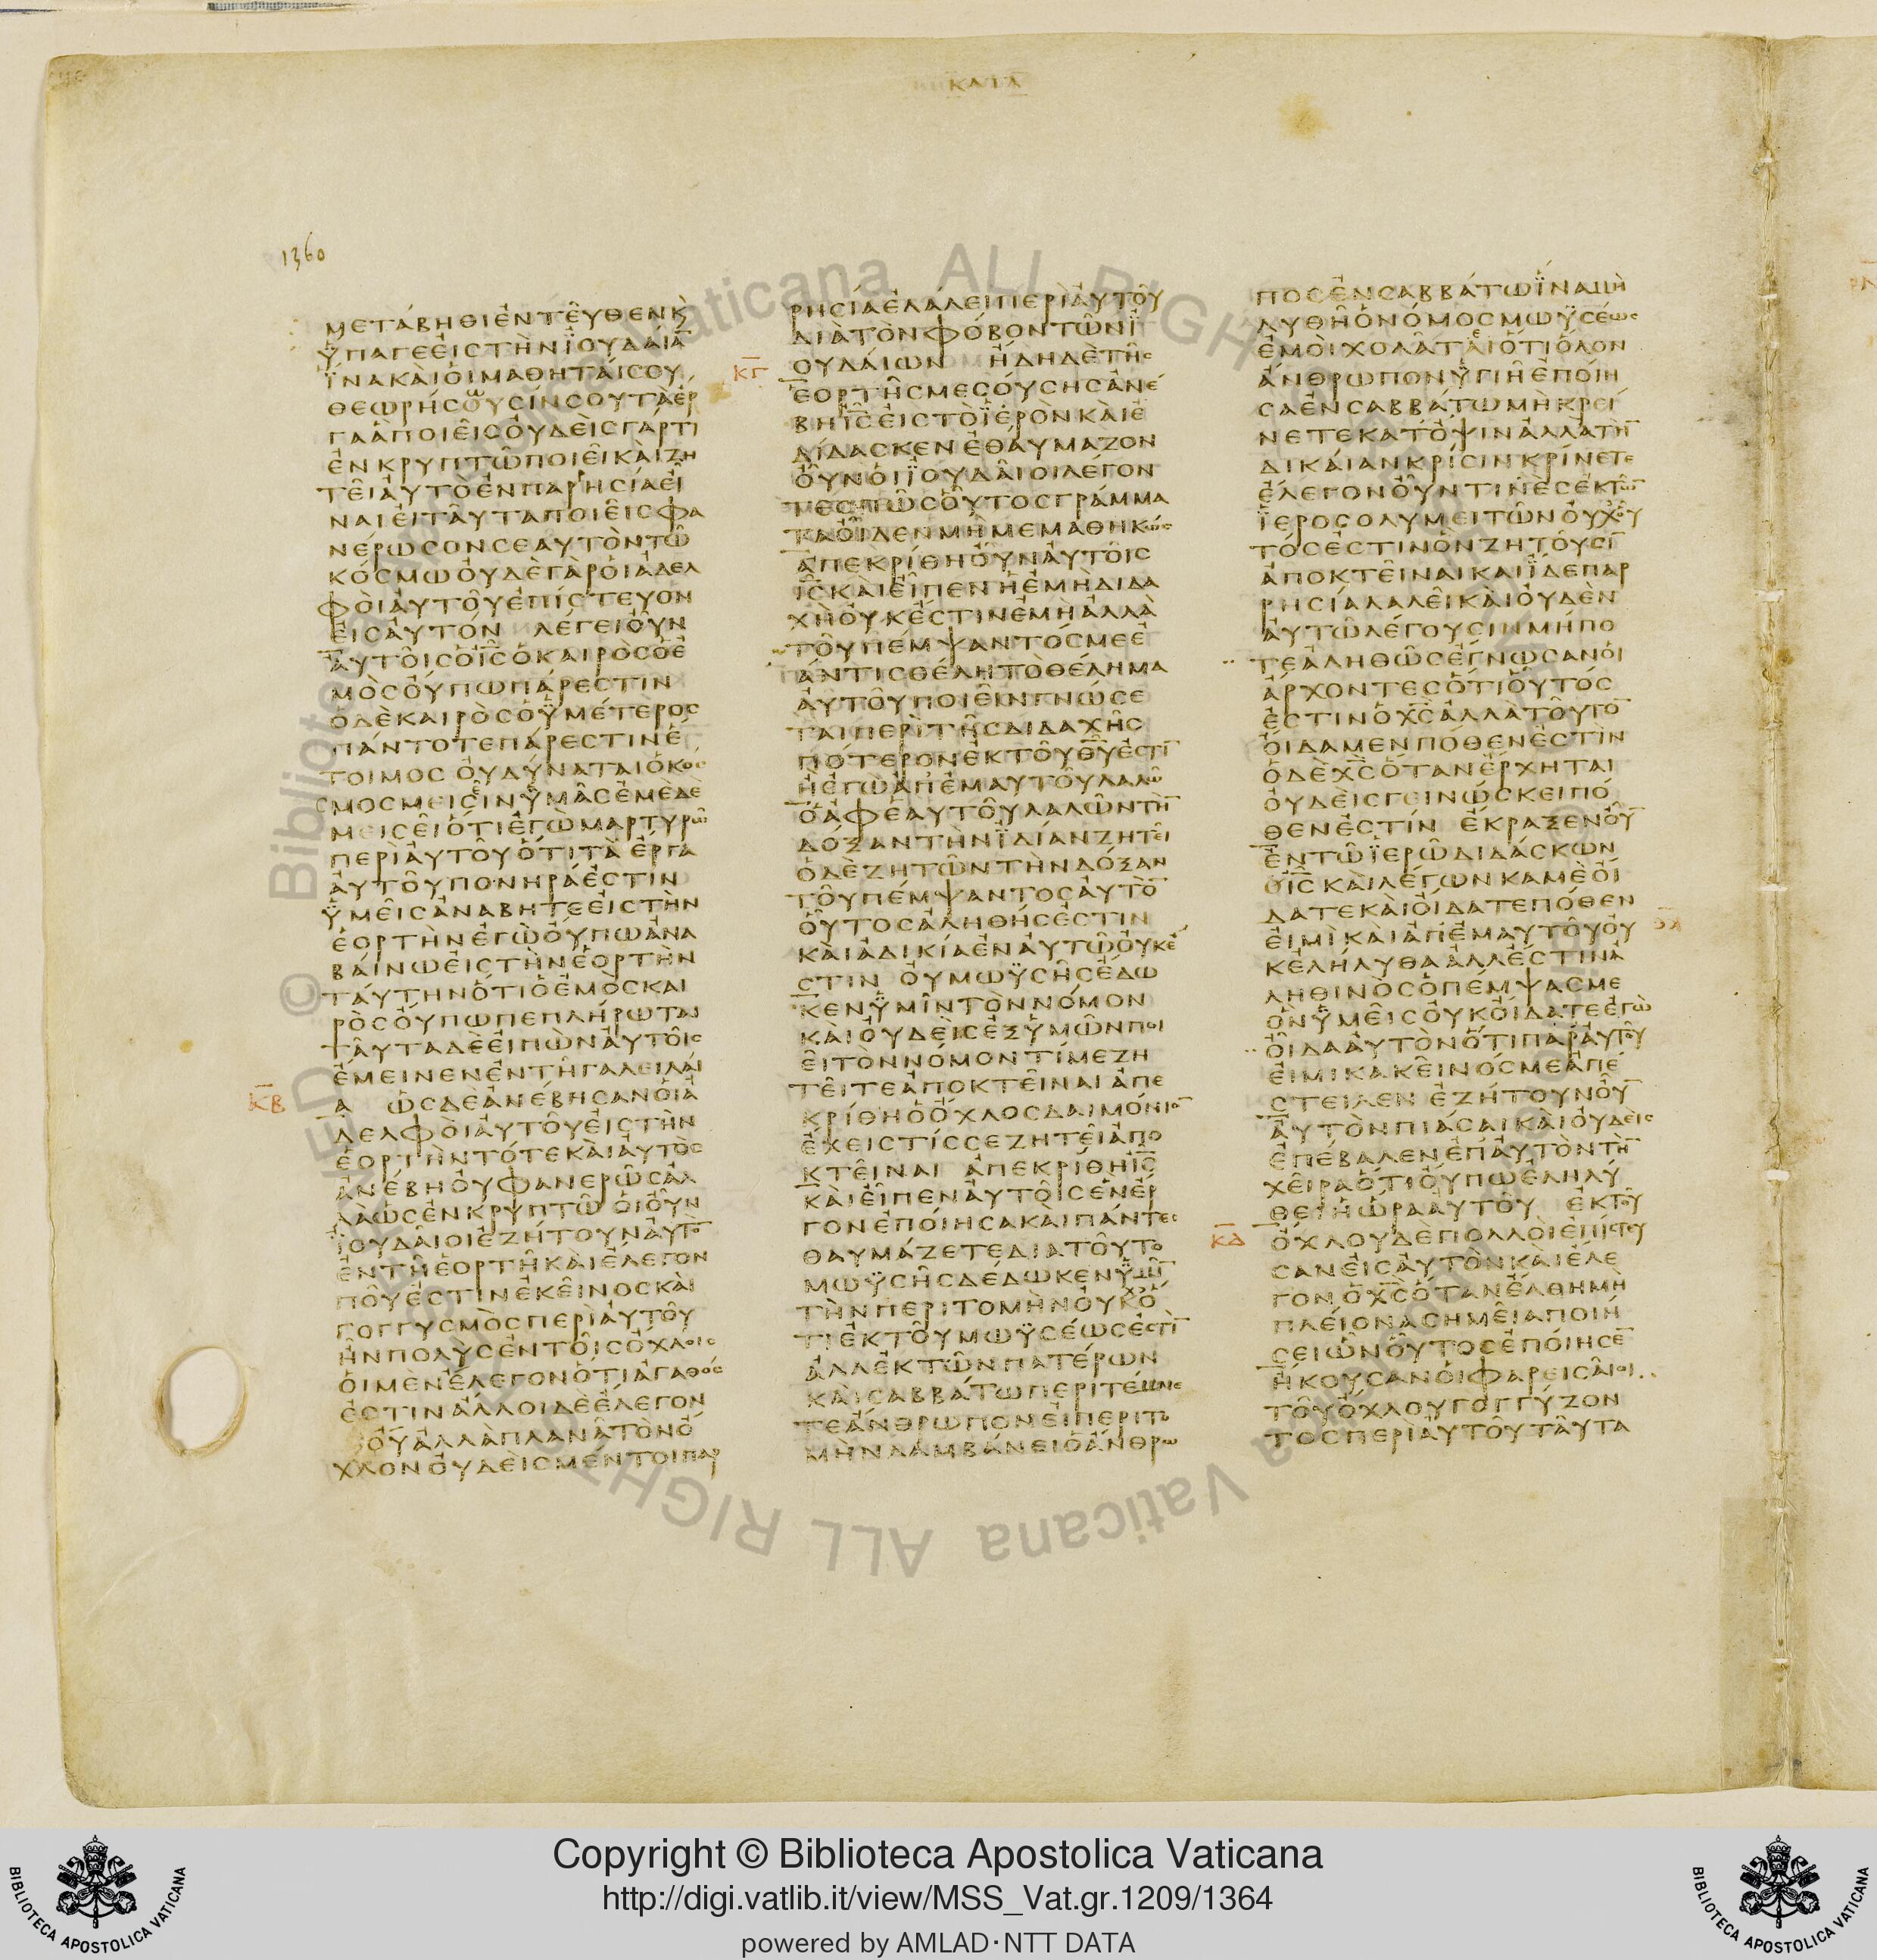 ΚΑΤΑ
1360
ΜΕΤΑΒΗΘΙΕΝΤΕΥΘΕΝΚ
ΫΠΑΓΕΕΙΣΤΗΝΪΟΥΔΑΙΑ̅
ΪΝΑΚΑΙΟΙΜΑΘΗΤΑΙΣΟΥ
ΘΕΩΡΗΣΟΥΣΙΝΣΟΥΤΑΕΡ
ΓΑΑΠΟΙΕΙΣΟΥΔΕΙΣΓΑΡΤΙ
ΕΝΚΡΥΠΤΩΠΟΙΕΙΚΑΙΖΗ
ΤΕΙΑΥΤΟΕΝΠΑΡΗΣΙΑΕΙ
ΝΑΙΕΙΤΑΥΤΑΠΟΙΕΙΣΦΑ
ΝΕΡΩΣΟΝΣΕΑΥΤΟΝΤΩ
ΚΟΣΜΩΟΥΔΕΓΑΡΟΙΑΔΕΛ
ΦΟΙΑΥΤΟΥΕΠΙΣΤΕΥΟΝ
ΕΙΣΑΥΤΟΝ ΛΕΓΕΙΟΥΝ
ΑΥΤΟΙΣΟΙ̅Σ̅ΟΚΑΙΡΟΣΟΕ
ΜΟΣΟΥΠΩΠΑΡΕΣΤΙΝ
ΟΔΕΚΑΙΡΟΣΟΫΜΕΤΕΡΟΣ
ΠΑΝΤΟΤΕΠΑΡΕΣΤΙΝΕ
ΤΟΙΜΟΣ ΟΥΔΥΝΑΤΑΙΟΚΟ
ΣΜΟΣΜΕΙΣΕΙΝΫΜΑΣΕΜΕΔΕ
ΜΕΙΣΕΙΟΤΙΕΓΩΜΑΡΤΥΡΩ
ΠΕΡΙΑΥΤΟΥΟΤΙΤΑΕΡΓΑ
ΑΥΤΟΥΠΟΝΗΡΑΕΣΤΙΝ
ΫΜΕΙΣΑΝΑΒΗΤΕΕΙΣΤΗΝ
ΕΟΡΤΗΝΕΓΩΟΥΠΩΑΝΑ
ΒΑΙΝΩΕΙΣΤΗΝΕΟΡΤΗΝ
ΤΑΥΤΗΝΟΤΙΟΕΜΟΣΚΑΙ
ΡΟΣΟΥΠΩΠΕΠΛΗΡΩΤΑΙ
ΤΑΥΤΑΔΕΕΙΠΩΝΑΥΤΟΙΣ
ΕΜΕΙΝΕΝΕΝΤΗΓΑΛΕΙΛΑΙ
Κ̅Β̅ Α ΩΣΔΕΑΝΕΒΗΣΑΝΟΙΑ
ΔΕΛΦΟΙΑΥΤΟΥΕΙΣΤΗΝ
ΕΟΡΤΗΝΤΟΤΕΚΑΙΑΥΤΟΣ
ΑΝΕΒΗΟΥΦΑΝΕΡΩΣΑΛ
ΛΑΩΣΕΝΚΡΥΠΤΩ ΟΙΟΥΝ
ΪΟΥΔΑΙΟΙΕΖΗΤΟΥΝΑΥΤΟ̅
ΕΝΤΗΕΟΡΤΗΚΑΙΕΛΕΓΟΝ
ΠΟΥΕΣΤΙΝΕΚΕΙΝΟΣΚΑΙ
ΓΟΓΓΥΣΜΟΣΠΕΡΙΑΥΤΟΥ
ΗΝΠΟΛΥΣΕΝΤΟΙΣΟΧΛΟΙΣ
ΟΙΜΕΝΕΛΕΓΟΝΟΤΙΑΓΑΘΟΣ
ΕΣΤΙΝΑΛΛΟΙΔΕΕΛΕΓΟΝ
ΟΥΑΛΛΑΠΛΑΝΑΤΟΝΟ
ΧΛΟΝΟΥΔΕΙΣΜΕΝΤΟΙΠΑΡ
ΡΗΣΙΑΕΛΑΛΕΙΠΕΡΙΑΥΤΟΥ
ΔΙΑΤΟΝΦΟΒΟΝΤΩΝΪ
Κ̅Γ̅ ΟΥΔΑΙΩΝ ΗΔΗΔΕΤΗΣ
ΕΟΡΤΗΣΜΕΣΟΥΣΗΣΑΝΕ
ΒΗΙ̅Σ̅ΕΙΣΤΟΪΕΡΟΝΚΑΙΕ
ΔΙΔΑΣΚΕΝΕΘΑΥΜΑΖΟΝ
ΟΥΝΟΙΪΟΥΔΑΙΟΙΛΕΓΟΝ
ΤΕΣΠΩΣΟΥΤΟΣΓΡΑΜΜΑ
ΤΑΟΙΔΕΝΜΗΜΕΜΑΘΗΚΩΣ
ΑΠΕΚΡΙΘΗΟΥΝΑΥΤΟΙΣ
Ι̅Σ̅ΚΑΙΕΙΠΕΝΗΕΜΗΔΙΔΑ
ΧΗΟΥΚΕΣΤΙΝΕΜΗΑΛΛΑ
ΤΟΥΠΕΜΨΑΝΤΟΣΜΕΕ
ΑΝΤΙΣΘΕΛΗΤΟΘΕΛΗΜΑ
ΑΥΤΟΥΠΟΙΕΙΝΓΝΩΣΕ
ΤΑΙΠΕΡΙΤΗΣΔΙΔΑΧΗΣ
ΠΟΤΕΡΟΝΕΚΤΟΥΘ̅Υ̅ΕΣΤΙ̅
ΗΕΓΩΑΠΕΜΑΥΤΟΥΛΑΛΩ
ΟΑΦΕΑΥΤΟΥΛΑΛΩΝΤΗ̅
ΔΟΞΑΝΤΗΝΪΔΙΑΝΖΗΤΕΙ
ΟΔΕΖΗΤΩΝΤΗΝΔΟΞΑΝ
ΤΟΥΠΕΜΨΑΝΤΟΣΑΥΤΟ̅
ΟΥΤΟΣΑΛΗΘΗΣΕΣΤΙΝ
ΚΑΙΑΔΙΚΙΑΕΝΑΥΤΩΟΥΚΕ
ΣΤΙΝ ΟΥΜΩΫΣΗΣΕΔΩ
ΚΕΝΫΜΙΝΤΟΝΝΟΜΟΝ
ΚΑΙΟΥΔΕΙΣΕΞΫΜΩΝΠΟΙ
ΕΙΤΟΝΝΟΜΟΝΤΙΜΕΖΗ
ΤΕΙΤΕΑΠΟΚΤΕΙΝΑΙΑΠΕ
ΚΡΙΘΗΟΟΧΛΟΣΔΑΙΜΟΝΙΟ̅
ΕΧΕΙΣΤΙΣΣΕΖΗΤΕΙΑΠΟ
ΚΤΕΙΝΑΙ ΑΠΕΚΡΙΘΗΙ̅Σ̅
ΚΑΙΕΙΠΕΝΑΥΤΟΙΣΕΝΕΡ
ΓΟΝΕΠΟΙΗΣΑΚΑΙΠΑΝΤΕΣ
ΘΑΥΜΑΖΕΤΕΔΙΑΤΟΥΤΟ
ΜΩΫΣΗΣΔΕΔΩΚΕΝΫΜΙ̅
ΤΗΝΠΕΡΙΤΟΜΗΝΟΥΧΟ
ΤΙΕΚΤΟΥΜΩΫΣΕΩΣΕΣΤΙ̅
ΑΛΛΕΚΤΩΝΠΑΤΕΡΩΝ
ΚΑΙΣΑΒΒΑΤΩΠΕΡΙΤΕΜΝΕ
ΤΕΑΝΘΡΩΠΟΝΕΙΠΕΡΙΤΟ
ΜΗΝΛΑΜΒΑΝΕΙΟΑΝΘΡΩ
ΠΟΣΕΝΣΑΒΒΑΤΩΪΝΑΜΗ
ΛΥΘΗΟΝΟΜΟΣΜΩΫΣΕΩΣ
ΕΜΟΙΧΟΛΑΤΑΙΟΤΙΟΛΟΝ
ΑΝΘΡΩΠΟΝΫΓΙΗΕΠΟΙΗ
ΣΑΕΝΣΑΒΒΑΤΩΜΗΚΡΕΙ
ΝΕΤΕΚΑΤΟΨΙΝΑΛΛΑΤΗ̅
ΔΙΚΑΙΑΝΚΡΙΣΙΝΚΡΙΝΕΤΕ
ΕΛΕΓΟΝΟΥΝΤΙΝΕΣΕΚΤΩ̅
ΪΕΡΟΣΟΛΥΜΕΙΤΩΝΟΥΧΟΥ
ΤΟΣΕΣΤΙΝΟΝΖΗΤΟΥΣΙ̅
ΑΠΟΚΤΕΙΝΑΙΚΑΙΪΔΕΠΑΡ
ΡΗΣΙΑΛΑΛΕΙΚΑΙΟΥΔΕΝ
ΑΥΤΩΛΕΓΟΥΣΙΝΜΗΠΟ
ΤΕΑΛΗΘΩΣΕΓΝΩΣΑΝΟΙ
ΑΡΧΟΝΤΕΣΟΤΙΟΥΤΟΣ
ΕΣΤΙΝΟΧ̅Σ̅ΑΛΛΑΤΟΥΤΟ̅
ΟΙΔΑΜΕΝΠΟΘΕΝΕΣΤΙΝ
ΟΔΕΧ̅Σ̅ΟΤΑΝΕΡΧΗΤΑΙ
ΟΥΔΕΙΣΓΕΙΝΩΣΚΕΙΠΟ
ΘΕΝΕΣΤΙΝ ΕΚΡΑΞΕΝΟΥ̅
ΕΝΤΩΪΕΡΩΔΙΔΑΣΚΩΝ
ΟΙ̅Σ̅ΚΑΙΛΕΓΩΝΚΑΜΕΟΙ
ΔΑΤΕΚΑΙΟΙΔΑΤΕΠΟΘΕΝ
ΕΙΜΙΚΑΙΑΠΕΜΑΥΤΟΥΟΥ
ΚΕΛΗΛΥΘΑΑΛΛΕΣΤΙΝΑ
ΛΗΘΙΝΟΣΟΠΕΜΨΑΣΜΕ
ΟΝΫΜΕΙΣΟΥΚΟΙΔΑΤΕΕΓΩ
ΟΙΔΑΑΥΤΟΝΟΤΙΠΑΡΑΥΤΟΥ
ΕΙΜΙΚΑΚΕΙΝΟΣΜΕΑΠΕ
ΣΤΕΙΛΕΝ ΕΖΗΤΟΥΝΟΥ̅
ΑΥΤΟΝΠΙΑΣΑΙΚΑΙΟΥΔΕΙΣ
ΕΠΕΒΑΛΕΝΕΠΑΥΤΟΝΤΗ̅
ΧΕΙΡΑΟΤΙΟΥΠΩΕΛΗΛΥ
ΘΕΙΗΩΡΑΑΥΤΟΥ ΕΚΤΟΥ
Κ̅Δ̅ ΟΧΛΟΥΔΕΠΟΛΛΟΙΕΠΙΣΤΕΥ
ΣΑΝΕΙΣΑΥΤΟΝΚΑΙΕΛΕ
ΓΟΝΟΧ̅Σ̅ΟΤΑΝΕΛΘΗΜΗ
ΠΛΕΙΟΝΑΣΗΜΕΙΑΠΟΙΗ
ΣΕΙΩΝΟΥΤΟΣΕΠΟΙΗΣΕ̅
ΗΚΟΥΣΑΝΟΙΦΑΡΕΙΣΑΙΟΙ
ΤΟΥΟΧΛΟΥΓΟΓΓΥΖΟΝ
ΤΟΣΠΕΡΙΑΥΤΟΥΤΑΥΤΑ
© Biblioteca Apostolica Vaticana ALL RIGHTS RESERVED
Copyright © Biblioteca Apostolica Vaticana
http://digi.vatlib.it/view/MSS_Vat.gr.1209/1364
powered by AMLAD·NTT DATA
BIBLIOTECA APOSTOLICA VATICANA
BIBLIOTECA APOSTOLICA VATICANA